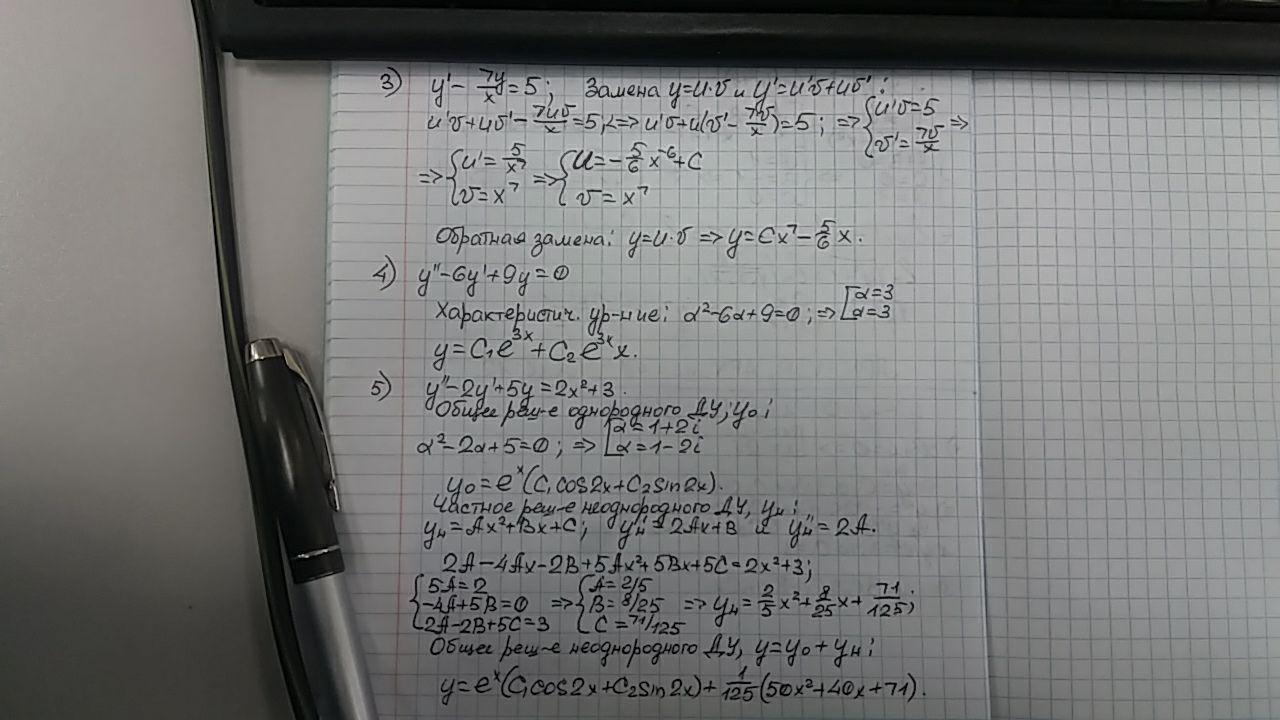 3) y' - 7y/x = 5; Замена y=u·v и y'=u'v+uv':
u'v+uv' - 7uv/x = 5; <=> u'v+u(v' - 7v/x)=5; => { u'v=5 v'=7v/x =>
=> { u'=5/x⁷ v=x⁷ => { u=-5/6 x⁻⁶+C v=x⁷
Обратная замена: y=u·v => y=Cx⁷-5/6 x.
4) y''-6y'+9y=0
Характеристич. ур-ние: α²-6α+9=0; => [ α=3 α=3
y=C₁e³ˣ+C₂e³ˣx.
5) y''-2y'+5y=2x²+3.
Общее реш-е однородного ДУ, y₀:
α²-2α+5=0; => [ α=1+2i α=1-2i
y₀=eˣ(C₁cos2x+C₂sin2x).
Частное реш-е неоднородного ДУ, yн:
yн=Ax²+Bx+C; y'н=2Ax+B и y''н=2A.
2A-4Ax-2B+5Ax²+5Bx+5C=2x²+3;
{ 5A=2 -4A+5B=0 2A-2B+5C=3 => { A=2/5 B=8/25 C=71/125 => yн=2/5 x²+8/25 x+71/125;
Общее реш-е неоднородного ДУ, y=y₀+yн:
y=eˣ(C₁cos2x+C₂sin2x)+1/125(50x²+40x+71).